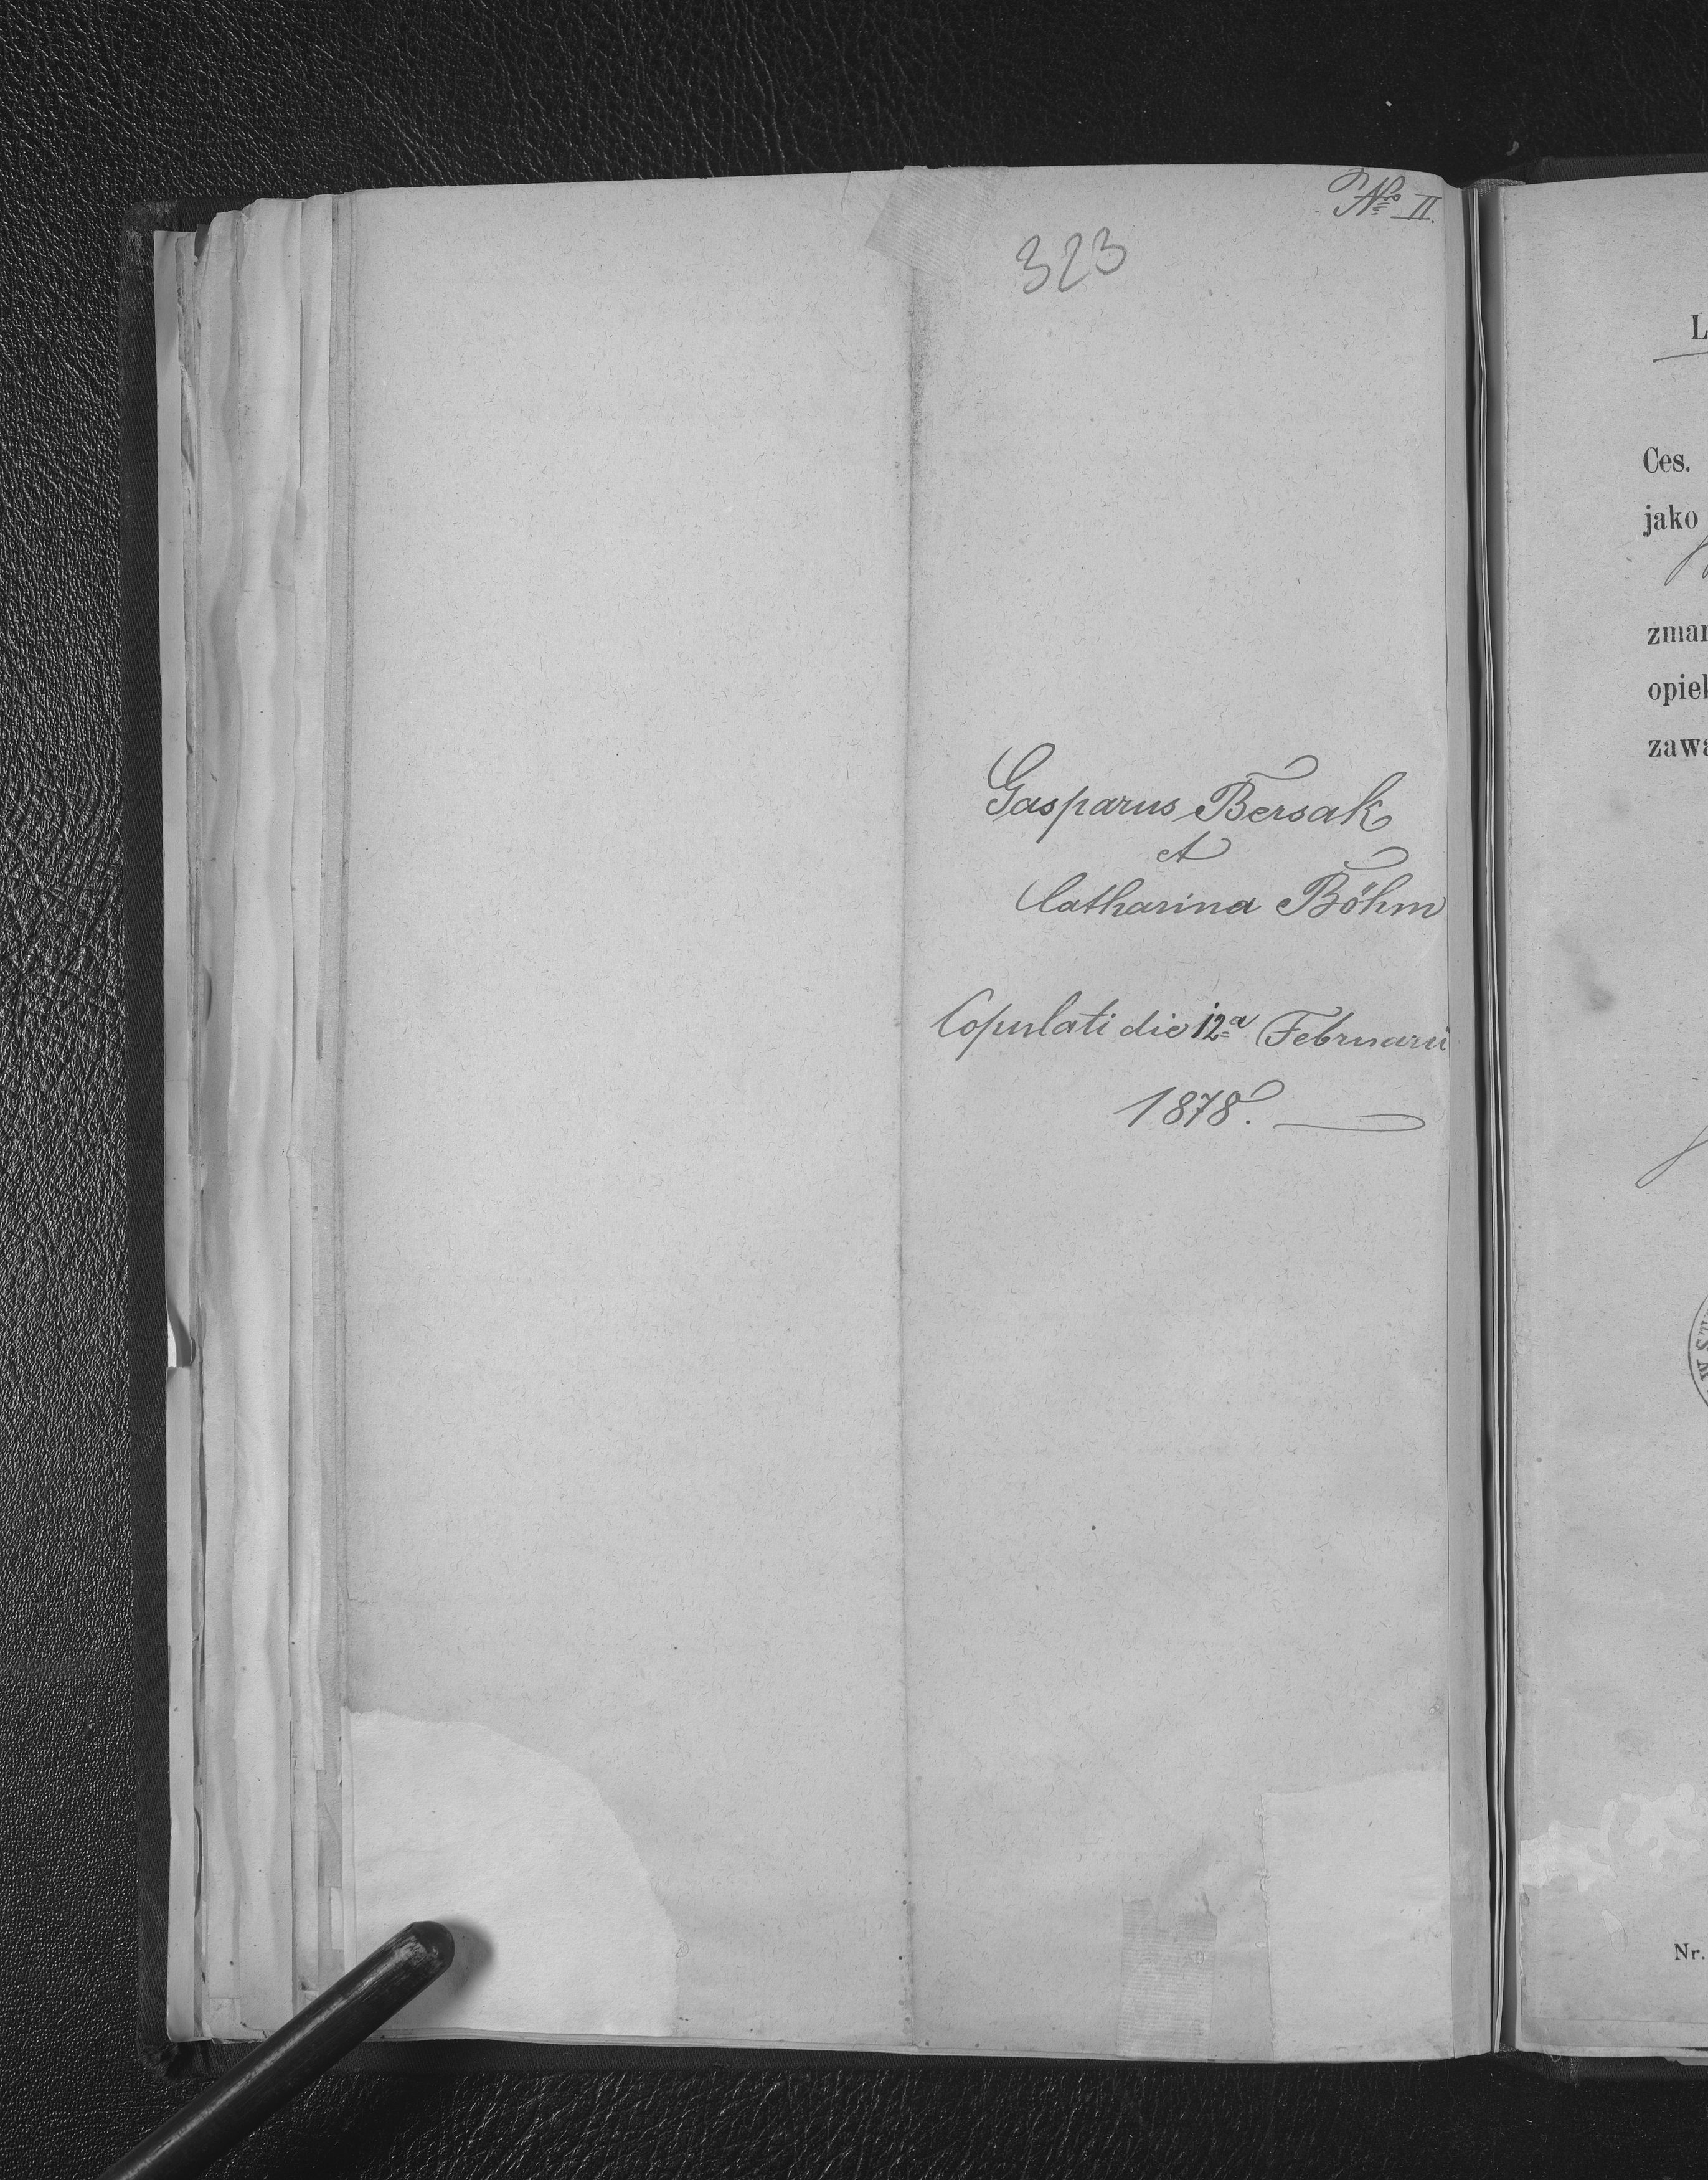 Nro II.
323
Gasparus Bersak
et
Catharina Böhm
Copulati die 12a Februarii
1878.
L
Ces.
jako
zmar
opiek
zawa
W ST
Nr.